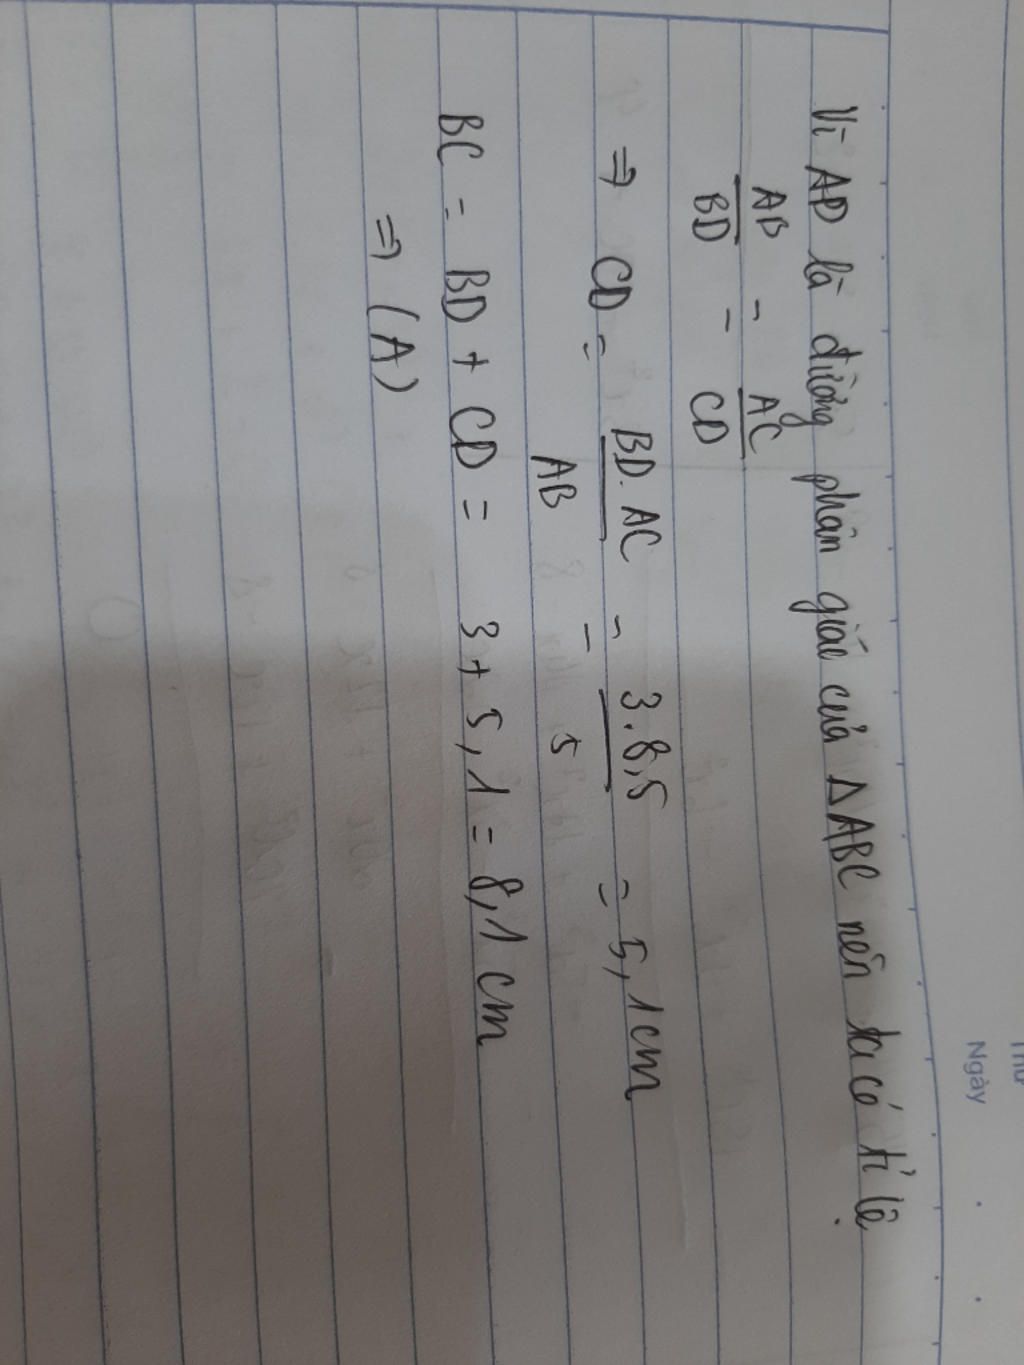 Thứ
Ngày
Vì AD là đường phân giác của ΔABC nên ta có tỉ lệ
AB/BD = AC/CD
⇒ CD = BD.AC/AB = 3.8,5/5 = 5,1cm
BC = BD + CD = 3 + 5,1 = 8,1 cm
⇒ (A)